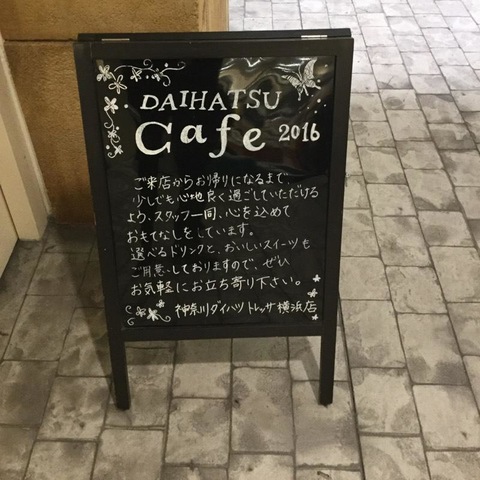 DAIHATSU
Cafe 2016
ご来店からお帰りになるまで、
少しでも心地良く過ごしていただける
よう、スタッフ一同、心を込めて
おもてなしをしています。
選べるドリンクと、おいしいスイーツも
ご用意しておりますので、ぜひ
お気軽にお立ち寄り下さい。
神奈川ダイハツ トレッサ横浜店